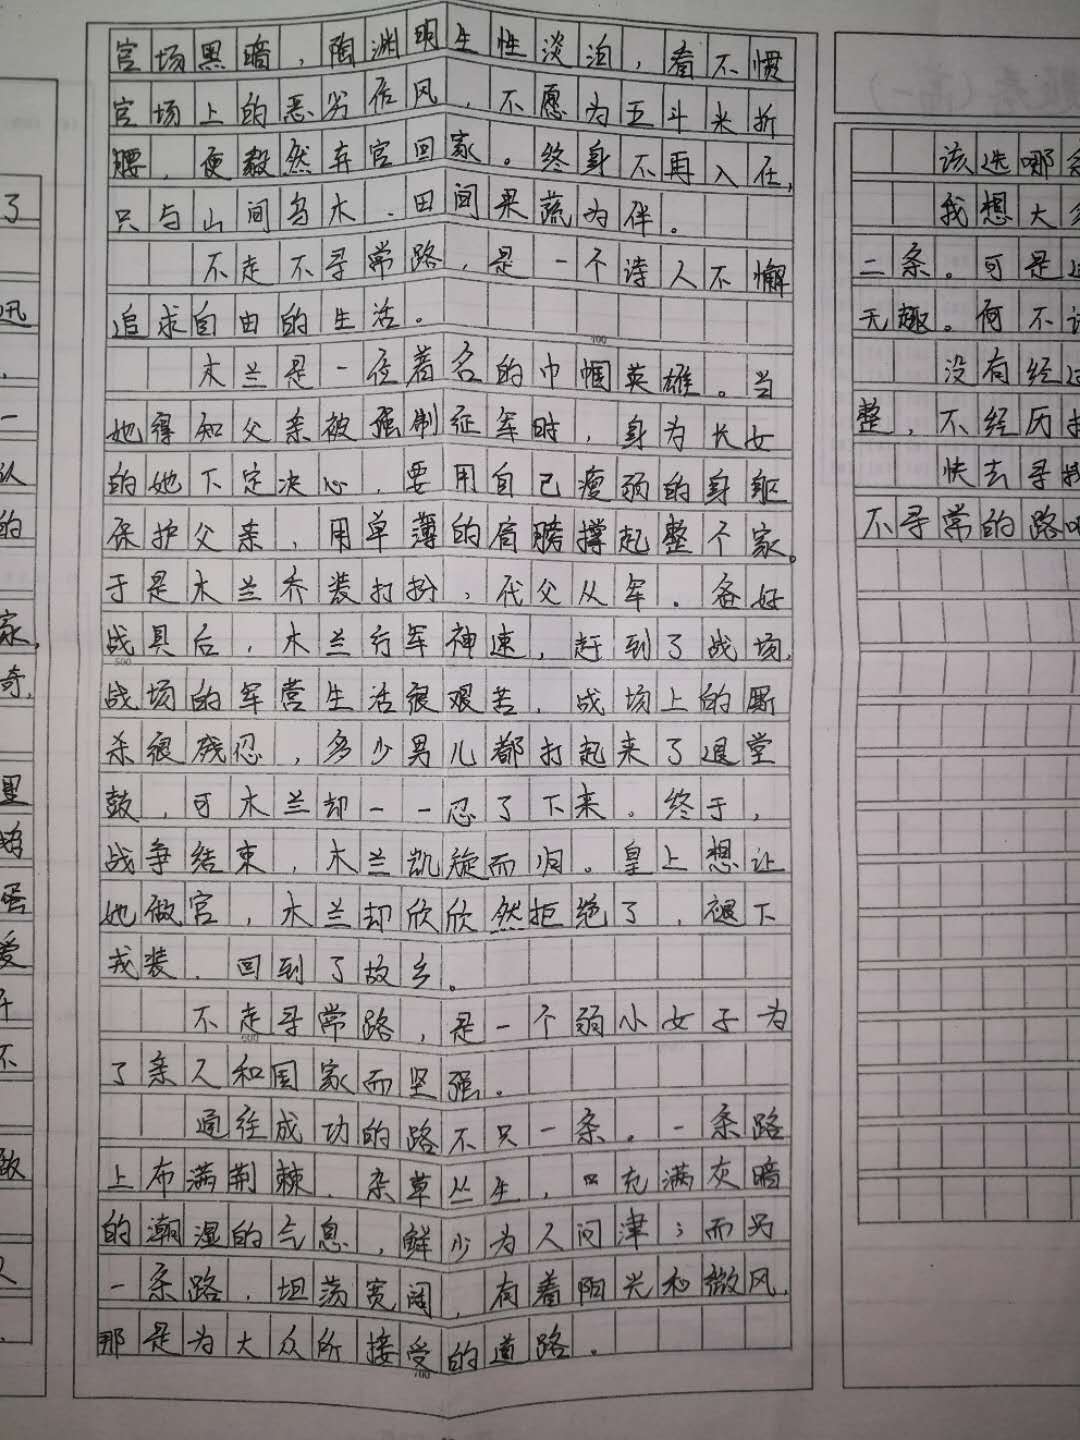 官场黑暗，陶渊明生性淡泊，看不惯
官场上的恶劣俗风，不愿为五斗米折
腰，便毅然弃官回家。终身不再入仕，
只与山间鸟木、田间果蔬为伴。
不走不寻常路，是一个诗人不懈
追求自由的生活。
木兰是一位着名的巾帼英雄。当
她得知父亲被强制征军时，身为长女
的她下定决心，要用自己瘦弱的身躯
保护父亲，用单薄的肩膀撑起整个家。
于是木兰乔装打扮，代父从军。备好
战具后，木兰行军神速，赶到了战场，
500
战场的军营生活很艰苦，战场上的厮
杀很残忍，多少男儿都打起来了退堂
鼓，可木兰却一一忍了下来。终于，
战争结束，木兰凯旋而归。皇上想让
她做官，木兰却欣欣然拒绝了，褪下
戎装，回到了故乡。
不走寻常路，是一个弱小女子为
600
了亲人和国家而坚强。
通往成功的路不只一条。一条路
上布满荆棘，杂草丛生，口充满灰暗
的潮湿的气息，鲜少为人问津；而另
一条路，坦荡宽阔，有着阳光和微风，
那是为大众所接受的道路。
700
该选哪
我想大
二条。可是
无趣。何不
没有经
整，不经历
快去寻找
不寻常的路
了
迅
一
认
的
家，
奇，
里
蛋
爱
不
做